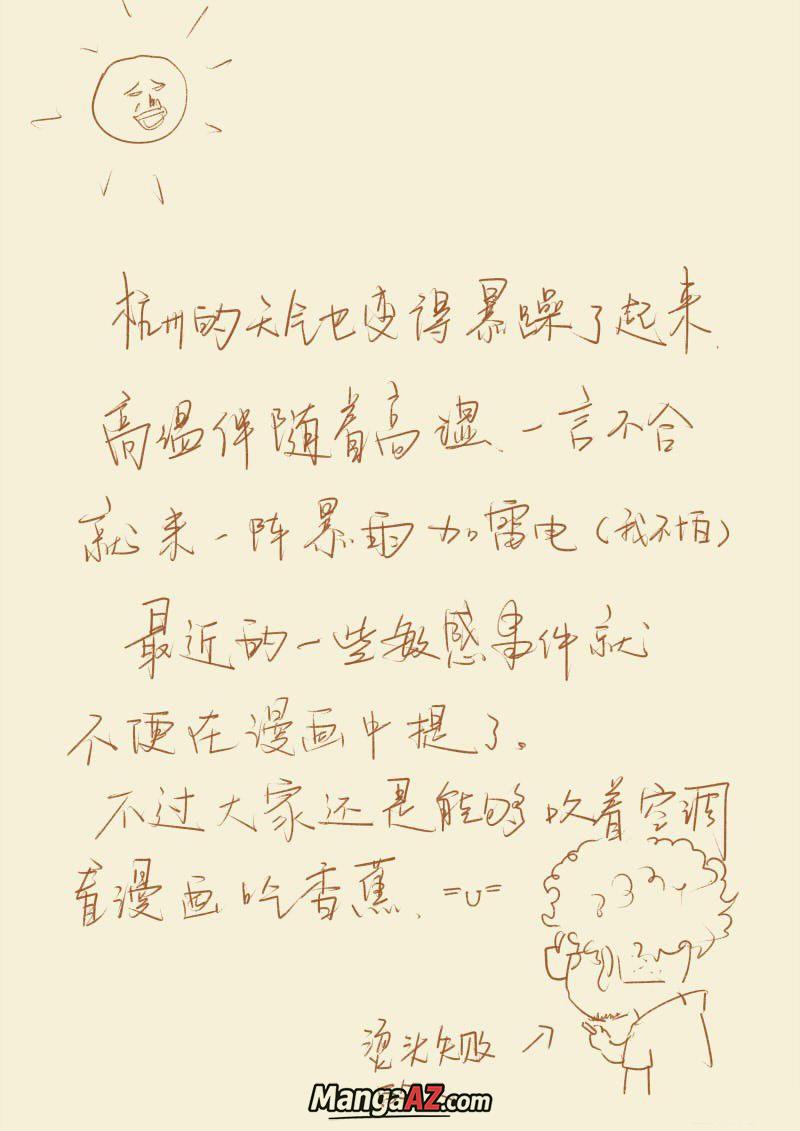 杭州的天气也变得暴躁了起来.
高温伴随着高湿、一言不合
就来一阵暴雨加雷电(我不怕)
最近的一些敏感事件就
不便在漫画中提了。
不过大家还是能够吹着空调
看漫画吃香蕉、=U=
烫头失败
MangaAZ.com